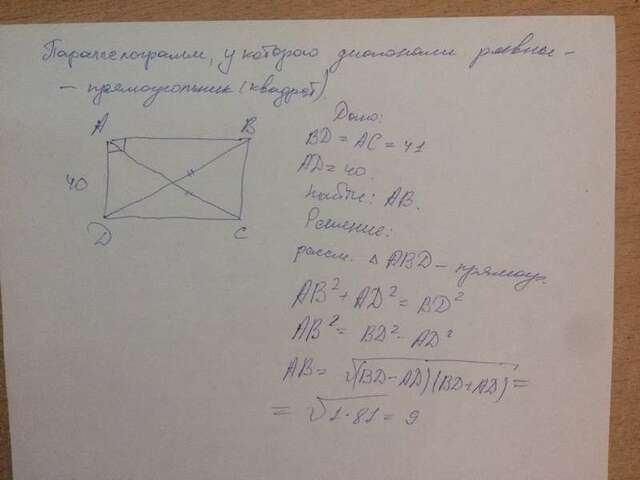 Параллелограмм, у которого диагонали равны -
- прямоугольник (квадрат).
A B
40
D C
Дано:
BD = AC = 41
AD = 40.
Найти: AB.
Решение:
рассм. △ ABD - прямоуг.
AB² + AD² = BD²
AB² = BD² - AD²
AB = √(BD - AD)(BD + AD) =
= √1·81 = 9